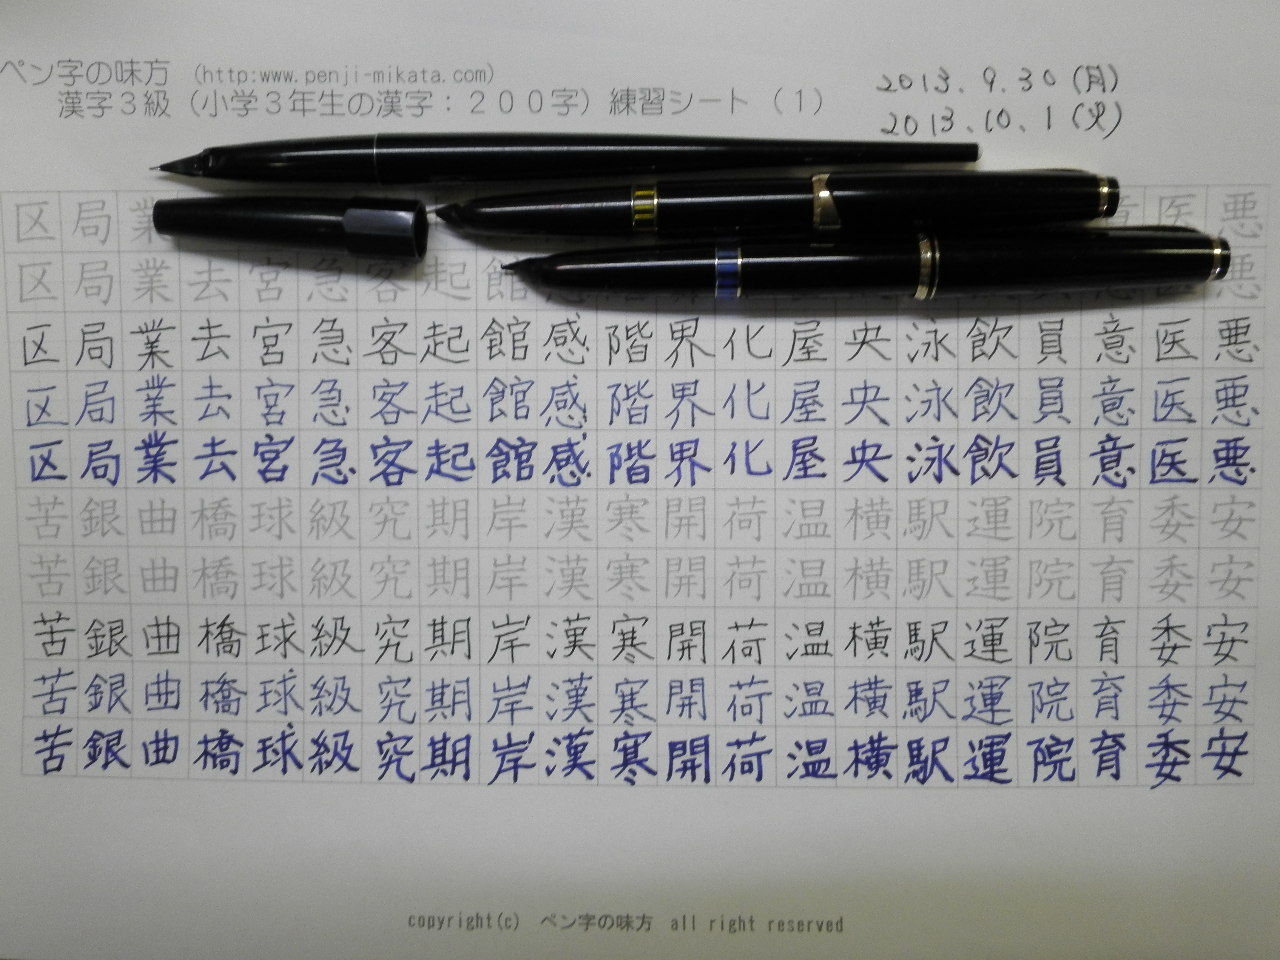 ペン字の味方 (http:www.penji-mikata.com)
漢字3級（小学3年生の漢字：200字）練習シート（1）
2013.9.30(月)
2013.10.1(火)
区局業意医悪
区局業去宮急客起館感員意医悪
区局業去宮急客起館感階界化屋央泳飲員意医悪
区局業去宮急客起館感階界化屋央泳飲員意医悪
区局業去宮急客起館感階界化屋央泳飲員意医悪
苦銀曲橋球級究期岸漢寒開荷温横駅運院育委安
苦銀曲橋球級究期岸漢寒開荷温横駅運院育委安
苦銀曲橋球級究期岸漢寒開荷温横駅運院育委安
苦銀曲橋球級究期岸漢寒開荷温横駅運院育委安
苦銀曲橋球級究期岸漢寒開荷温横駅運院育委安
copyright(c) ペン字の味方 all right reserved